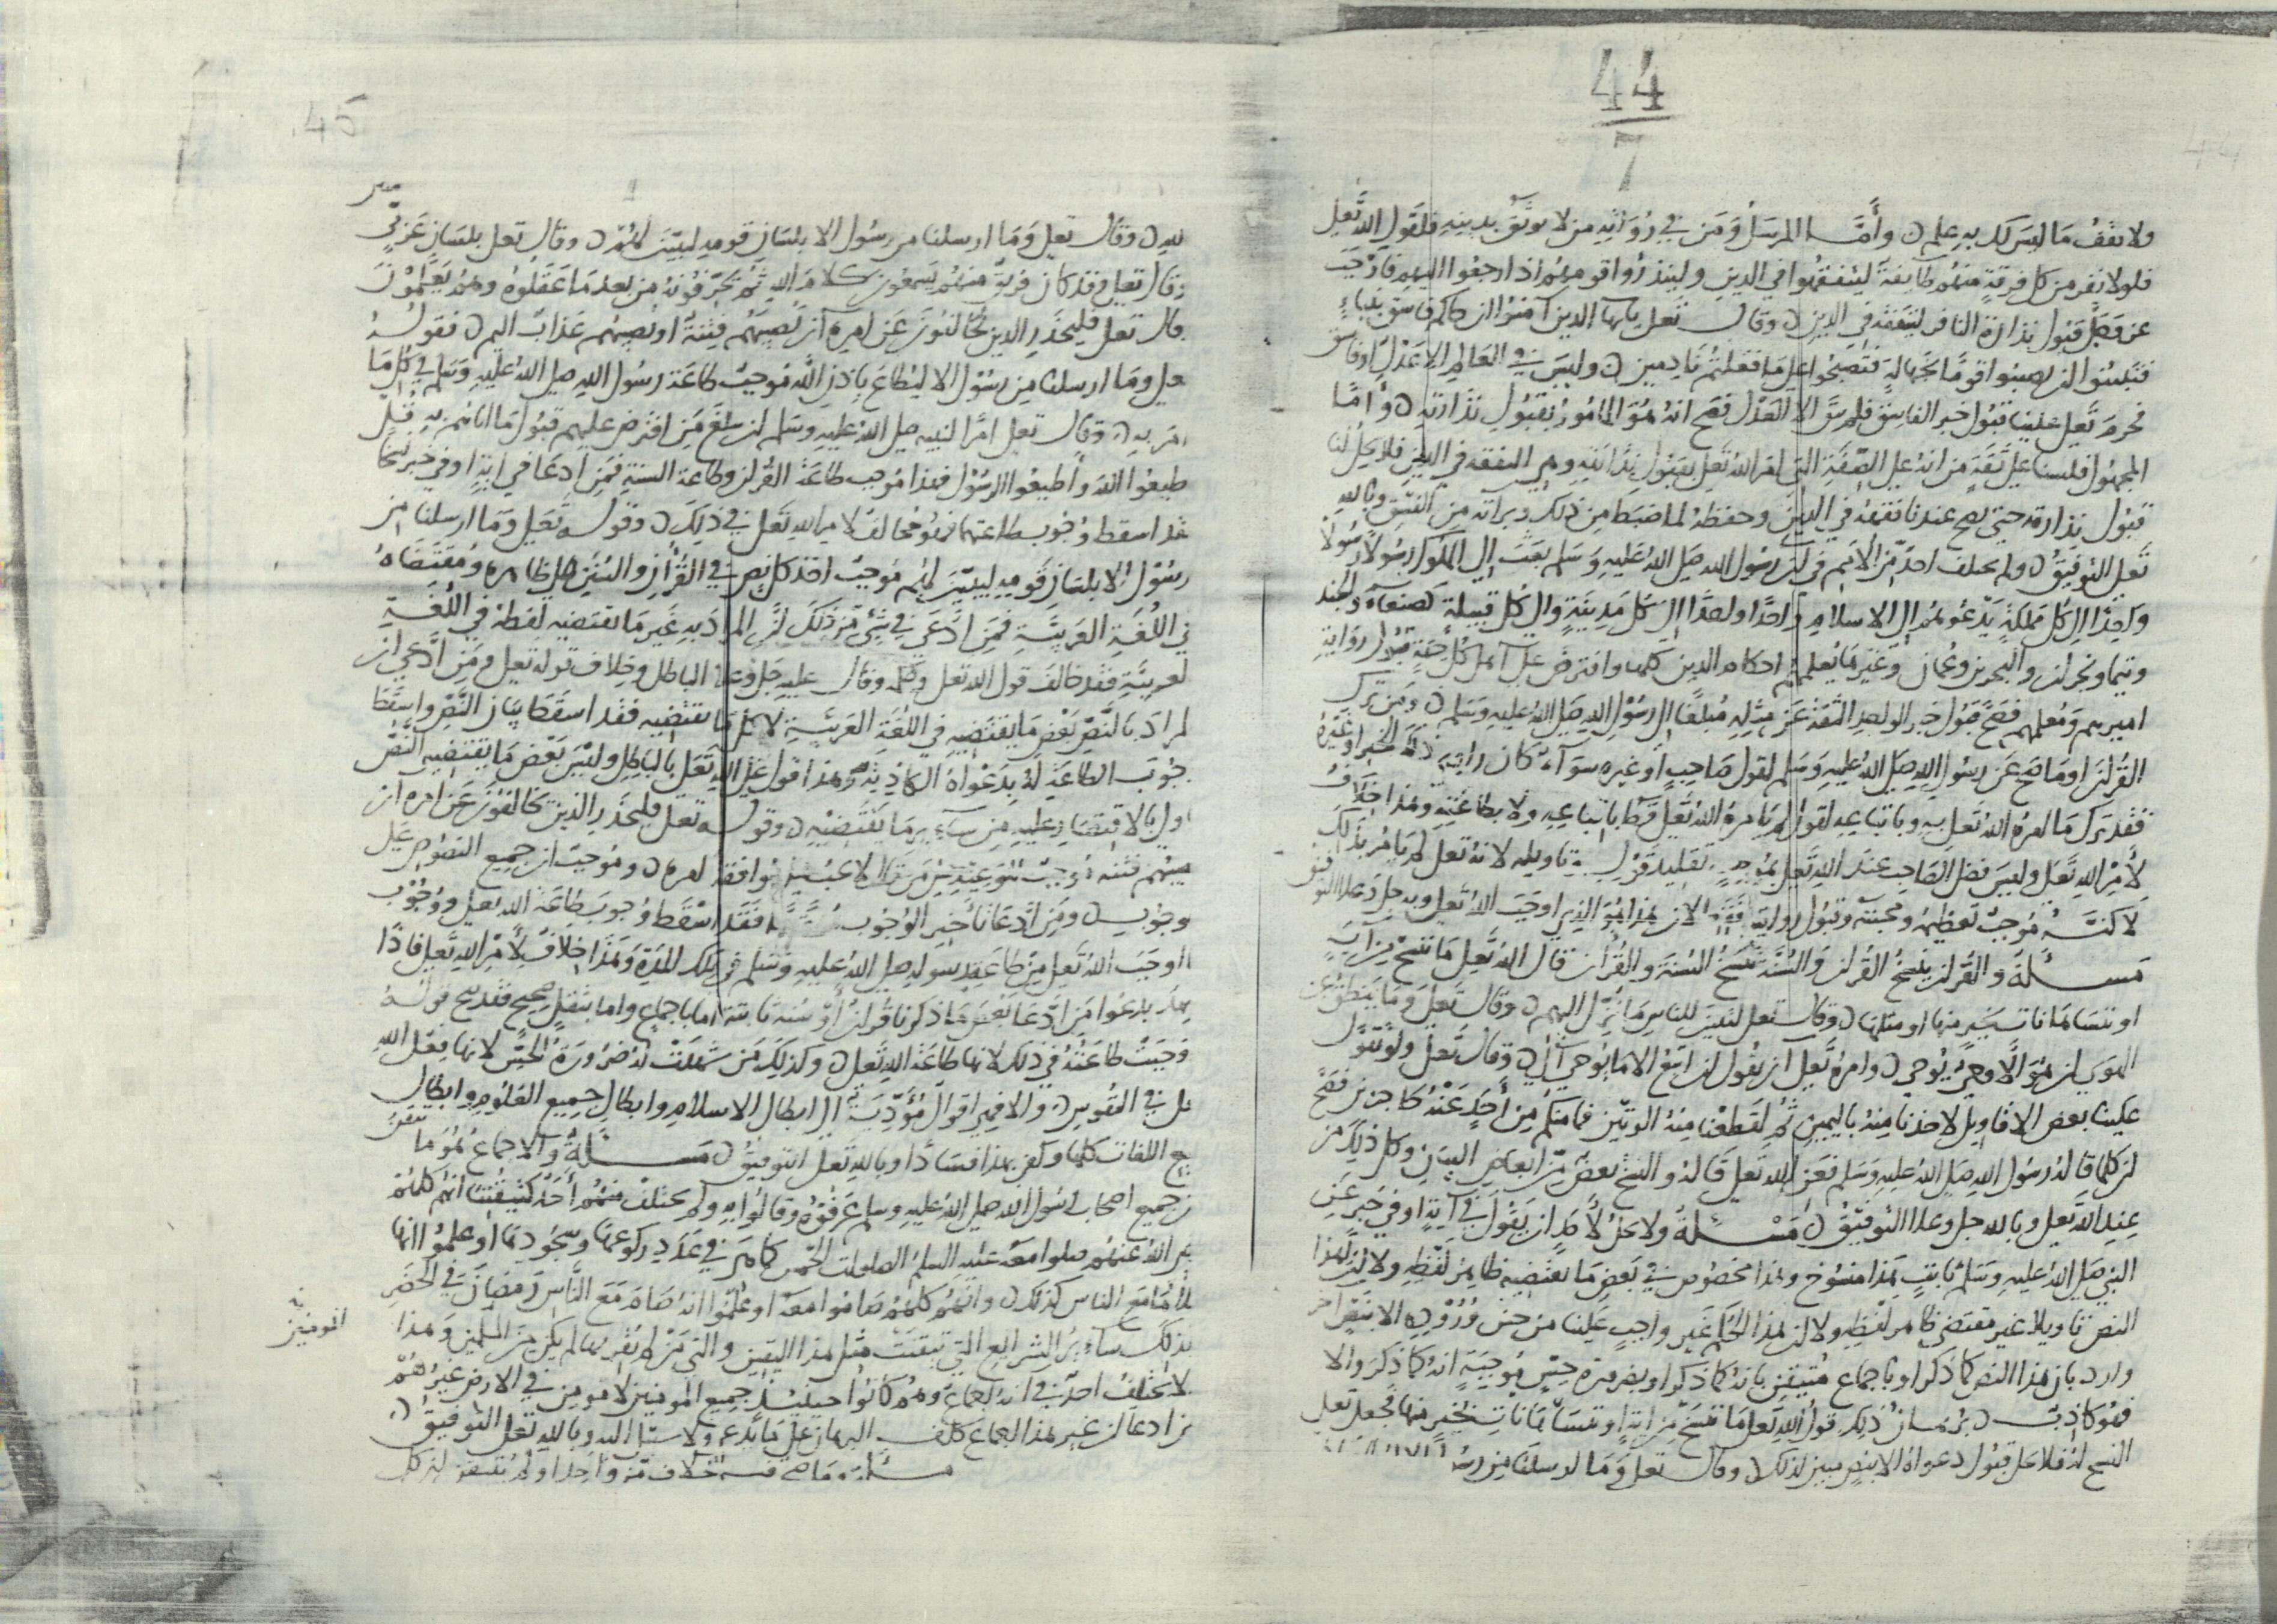 44
7
ولا تقف ما ليس لك به علم ن وأما المرسل ومن في رواته من لا يوثق بدينه فلقول الله تعلى
فلولا نفر من كل فرقة منهم طايفة ليتفقهوا في الدين ولينذروا قومهم اذا رجعوا اليهم فاوجب
عز وجل قبول نذارة النافر ليتفقه في الدين ن وقال تعلى يايها الذين آمنوا ان جاكم فاسق بنباء
فتبينوا ان تصيبوا قوما بجهالة فتصبحوا على ما فعلتم نادمين ن وليس في العالم الا عدل او فاسق
فحرم تعلى علينا قبول خبر الفاسق فلم يبق الا العدل فصح انه هو المامور بقبول نذارته ن وأما
المجهول فلسنا على ثقة من انه على الصفة التي امر الله تعلى بقبول نذارته وهي التفقه في الدين فلا يحل لنا
قبول نذارته حتى يصح عندنا تفقهه في الدين وحفظه لما ضبط من ذلك وبراته من الفسق وبالله
تعلى التوفيق ن ولم يختلف احد من الأمم في ان رسول الله صلى الله عليه وسلم بعث إلى الملوك رسولا رسولا
واحدا الى كل مملكة يدعوهم الى الاسلام واحدا واحدا إلى كل مدينة والى كل قبيلة كصنعاء والجند
وتيما ونجران والبحرين وعمان وغيرها يعلمهم احكام الدين كلها وافترض على اهل كل جهة قبول رواية
اميرهم ومعلمهم فصح قبول خبر الواحد الثقة عن مثله مبلغا الى رسول الله صلى الله عليه وسلم ن ومن ترك
القرآن او ما صح عن رسول الله صلى الله عليه وسلم لقول صاحب او غيره سوآء كان راوي ذلك الخبر او غيره
فقد ترك ما امره الله تعلى به وباتباعه لقول لم يامره الله تعلى قط باتباعه ولا بطاعته وهذا خلاف
لأمر الله تعلى وليس فضل الصاحب عند الله تعلى بموجب تقليد قوله وتاويله لانه تعلى لم يامر بذلك
لاكنه موجب تعظيمه ومحبته وقبول روايته فقط لان هذا هو الذي اوجب الله تعلى وبه جل وعلا التوفيق
مسئلة والقرآن ينسخ القرآن والسنة تنسخ السنة والقرآن قال الله تعلى ما ننسخ من آية
او ننسها نات بخير منها او مثلها ن وقال تعلى لتبين للناس ما نزل اليهم ن وقال تعلى وما ينطق عن
الهوى ان هو الا وحي يوحى ن وامره تعلى ان يقول ان اتبع الا ما يوحى الي ن وقال تعلى ولو تقول
علينا بعض الاقاويل لاخذنا منه باليمين ثم لقطعنا منه الوتين فما منكم من أحد عنه حاجزين فصح
ان كلما قاله رسول الله صلى الله عليه وسلم فعن الله تعلى قاله والنسخ بعض من ابعاض البيان وكل ذلك من
عند الله تعلى وبالله جل وعلا التوفيق ن مسئلة ولا يحل لأحد ان يقول في آية او في خبر عن
النبي صلى الله عليه وسلم ثابت هذا منسوخ وهذا مخصوص في بعض ما يقتضيه ظاهر لفظه ولا ان لهذا
النص تاويلا غير مقتضى ظاهر لفظه ولا ان هذا الحكم غير واجب علينا من حين وروده الا بنص آخر
وارد بان هذا النص كما ذكر او باجماع متيقن بانه كما ذكر او بضرورة حس موجبة انه كما ذكر والا
فهو كاذب ن برهان ذلك قول الله تعلى ما ننسخ من آية او ننسها نات بخير منها فجعل تعلى
النسخ له فلا يحل قبول دعواه الا بنص مبين لذلك ن وقال تعلى وما ارسلنا من رسول
45
ن وقال تعلى وما ارسلنا من رسول الا بلسان قومه ليبين لهم ن وقال تعلى بلسان عربي مبين
وقال تعلى وقد كان فريق منهم يسمعون كلام الله ثم يحرفونه من بعد ما عقلوه وهم يعلمون
قال تعلى فليحذر الذين يخالفون عن امره ان تصيبهم فتنة او يصيبهم عذاب اليم ن فقوله
على وما ارسلنا من رسول الا ليطاع باذن الله موجب طاعة رسول الله صلى الله عليه وسلم في كل ما
امر به ن وقال تعلى امرا لنبيه صلى الله عليه وسلم ان يبلغ من افترض عليهم قبول ما اتاهم به قل
طيعوا الله وأطيعوا الرسول فهذا موجب طاعة القرآن وطاعة السنة فمن ادعا في آية او في خبر نسخا
فقد اسقط وجوب طاعتهما فهو مخالف لامر الله تعلى في ذلك ن وقوله تعلى وما ارسلنا من
رسول الا بلسان قومه ليبين لهم موجب اخذ كل نص في القرآن والسنن على ظاهره ومقتضاه
في اللغة العربية فمن ادعى في شئ من ذلك ان المراد به غير ما يقتضيه لفظه في اللغة
لعربية فقد خالف قول الله تعلى وحكمه وقال عليه جل وعلا الباطل وخلاف قوله تعلى ومن ادعى ان
لمراد بالنص بعض ما يقتضيه في اللغة العربية لا كل ما يقتضيه فقد اسقط بيان النص واسقط
جوب الطاعة له بدعواه الكاذبة وهذا قول على الله تعلى بالباطل وليس بعض ما يقتضيه النص
اولى بالاقتصار عليه من سآئر ما يقتضيه ن وقوله تعلى فليحذر الذين يخالفون عن امره ان
وجوب ن ومن ادعا تاخير الوجوب مدة ما فقد اسقط وجوب طاعة الله تعلى ووجوب
ا اوجب الله تعلى من طاعة رسوله صلى الله عليه وسلم في تلك المدة وهذا خلاف لأمر الله تعلى فاذا
شهد بدعوا من ادعا بعض ما ذكرنا قرآن أو سنة ثابتة اما باجماع واما بنقل صحيح فقد صح قوله
وجبت طاعته في ذلك لانها طاعة الله تعلى ن وكذلك من شهدت له ضرورة الحس لانها فعل الله
على في النفوس ن والا فهي اقوال مؤدية الى ابطال الاسلام وابطال جميع العلوم وابطال
جميع اللغات كلها وكفى بهذا فسادا وبالله تعلى التوفيق ن مسئلة والاجماع هو ما تيقن
ن جميع اصحاب رسول الله صلى الله عليه وسلم عرفوه وقالوا به ولم يختلف منهم أحد كتيقننا انهم كلهم
ضي الله عنهم صلوا معه عليه السلم الصلوات الخمس كما هي في عدد ركوعها وسجودها او علموا انه
صلاها مع الناس كذلك ن وانهم كلهم صاموا معه او علموا انه صام مع الناس رمضان في الحضر
كذلك سآئر الشرائع التي تيقنت مثل هذا اليقين والتي من لم يقر بها لم يكن من المسلمين وهذا
لا يختلف احد في انه اجماع وهم كانوا حينئذ جميع المومنين لا مومن في الارض غيرهم
المومنين
من ادعا ان غير هذا اجماع كلف البرهان على ما يدعي ولا سبيل اليه وبالله تعلى التوفيق ن
مسئلة وما صح فيه خلاف من واحد او لم يتيقن ان كل